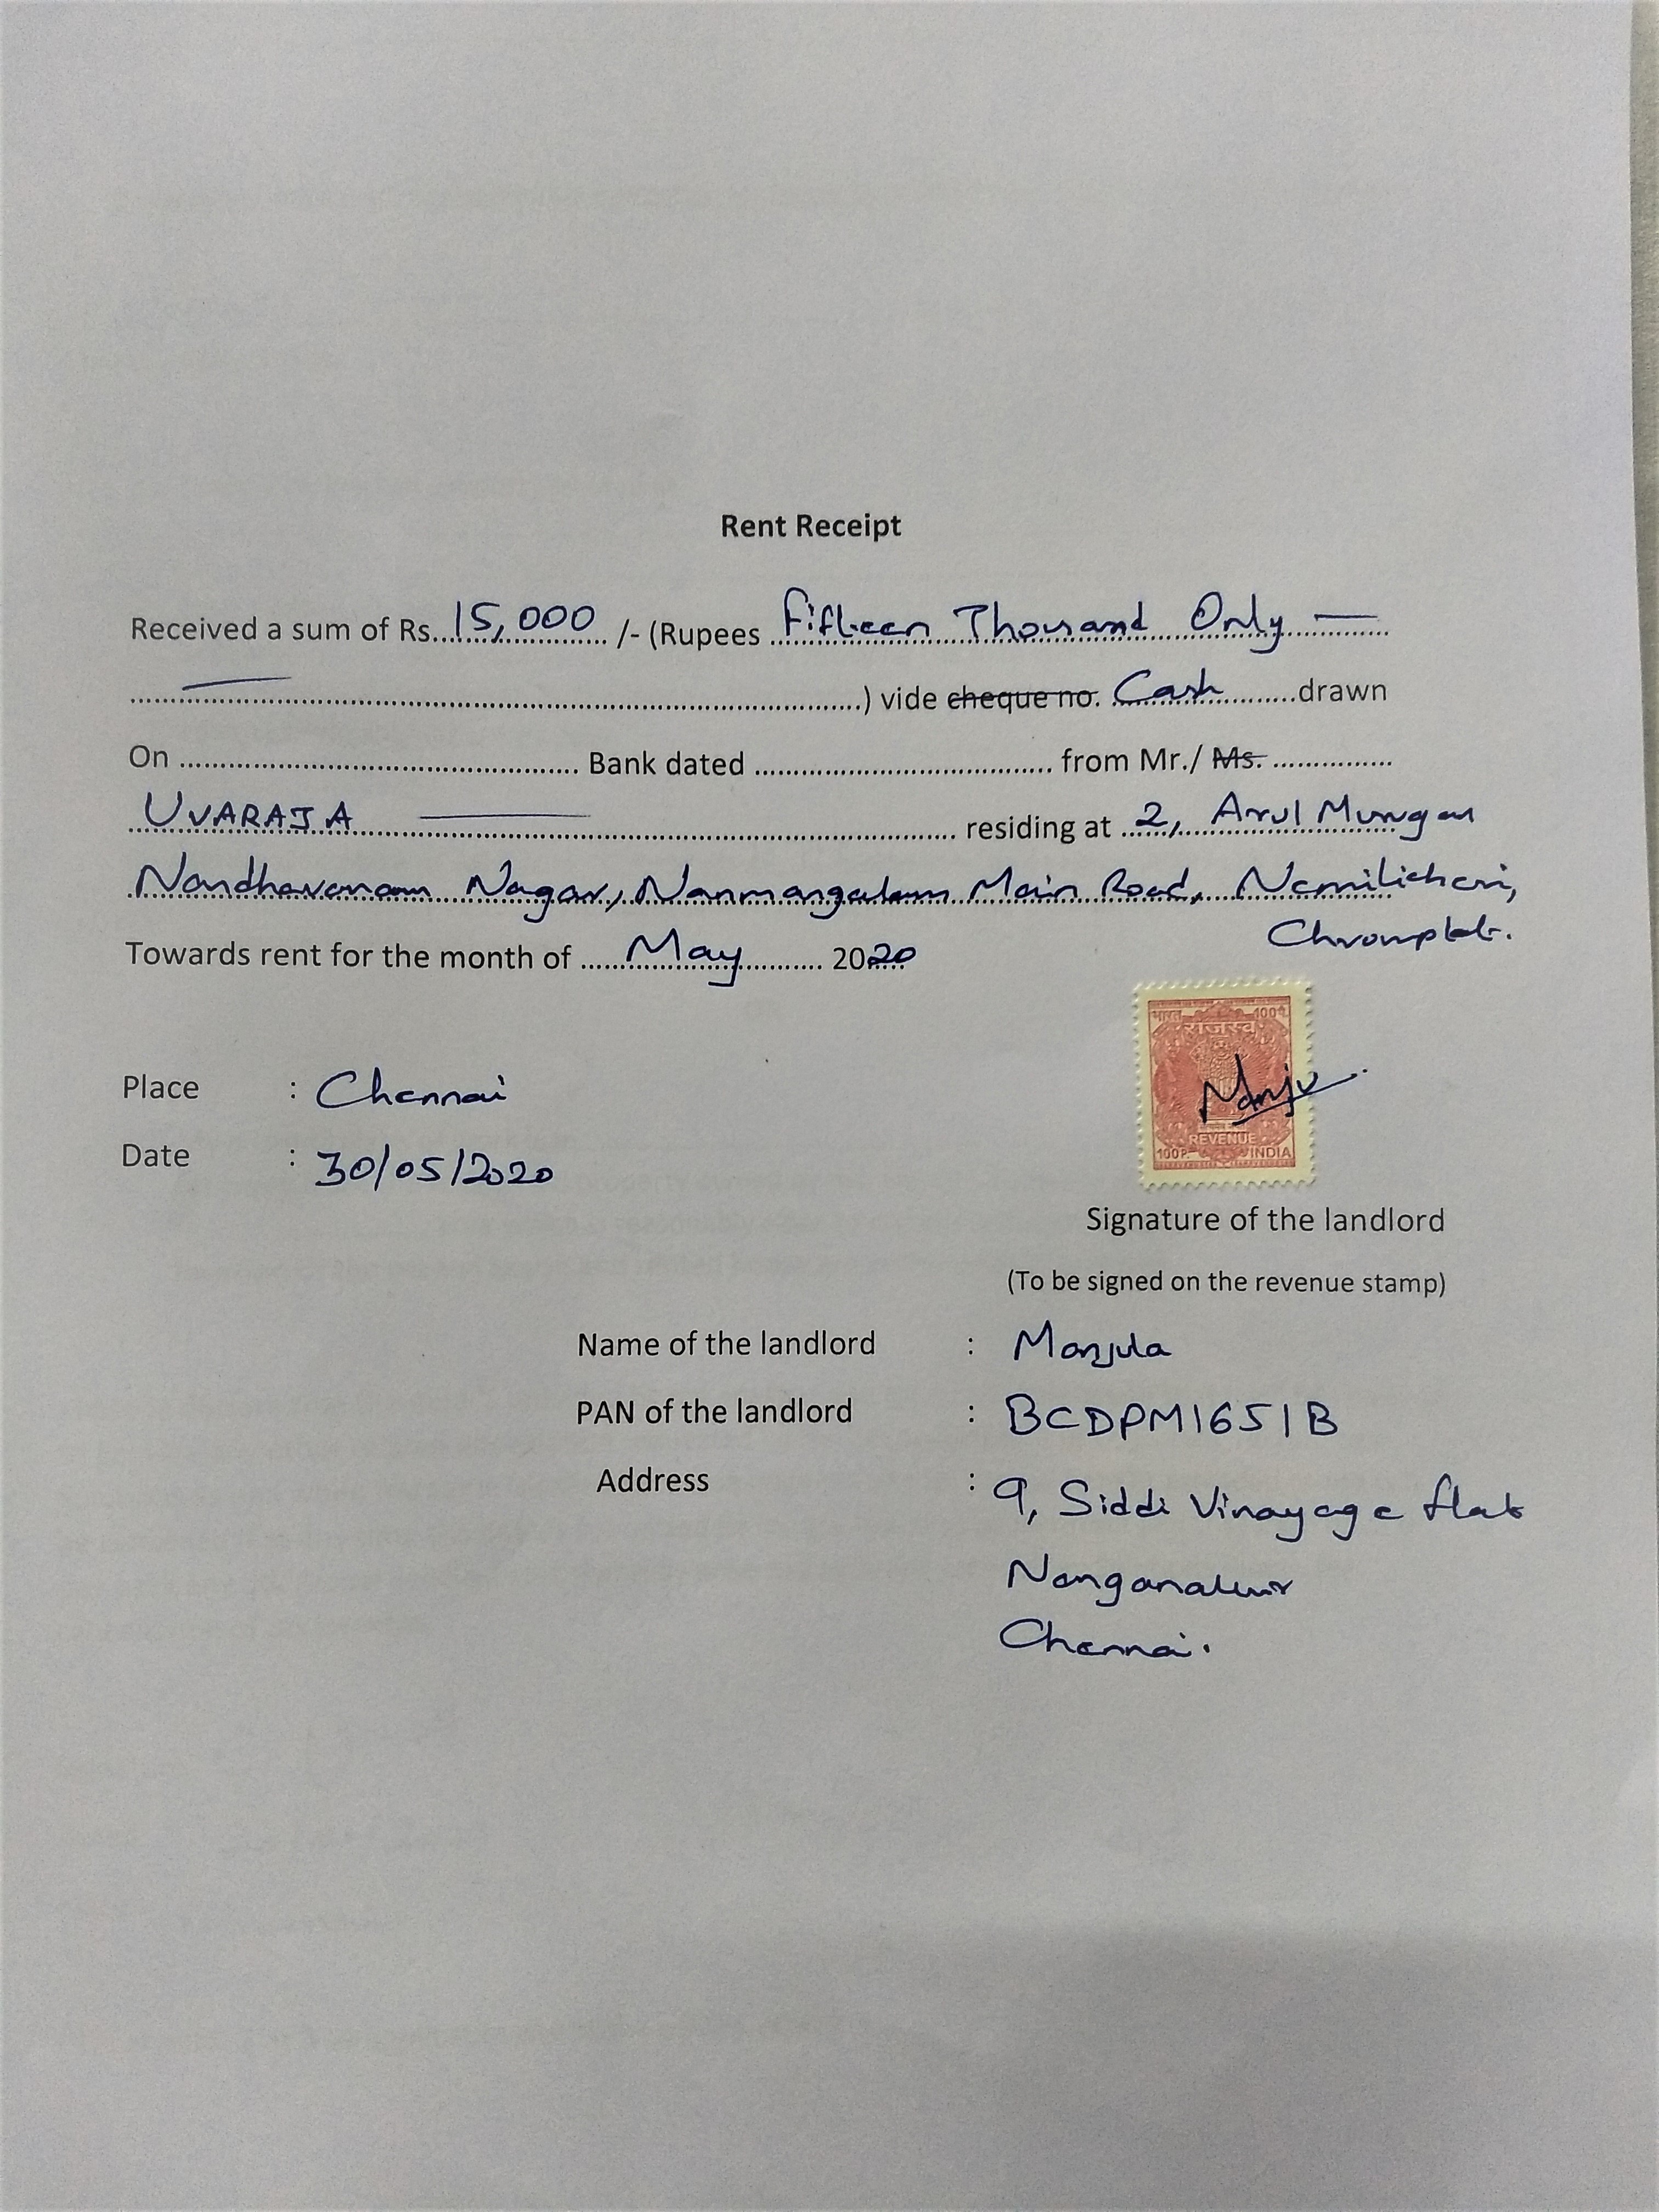 Rent Receipt
Received a sum of Rs. 15,000 /- (Rupees Fifteen Thousand Only —
— ) vide cheque no. Cash drawn
On ........ Bank dated ........ from Mr./ Ms. ........
UVARAJA — residing at 2, Arul Murugan
Nandhavanam Nagar, Nanmangalam Main Road, Nemilicheri,
Chrompet.
Towards rent for the month of May 2020
भारत 100प.
राजस्व
Place : Chennai
Manju
Date : 30/05/2020
REVENUE
100P. INDIA
Signature of the landlord
(To be signed on the revenue stamp)
Name of the landlord : Manjula
PAN of the landlord : BCDPM1651B
Address : 9, Siddi Vinayaga flat
Nanganallur
Chennai.